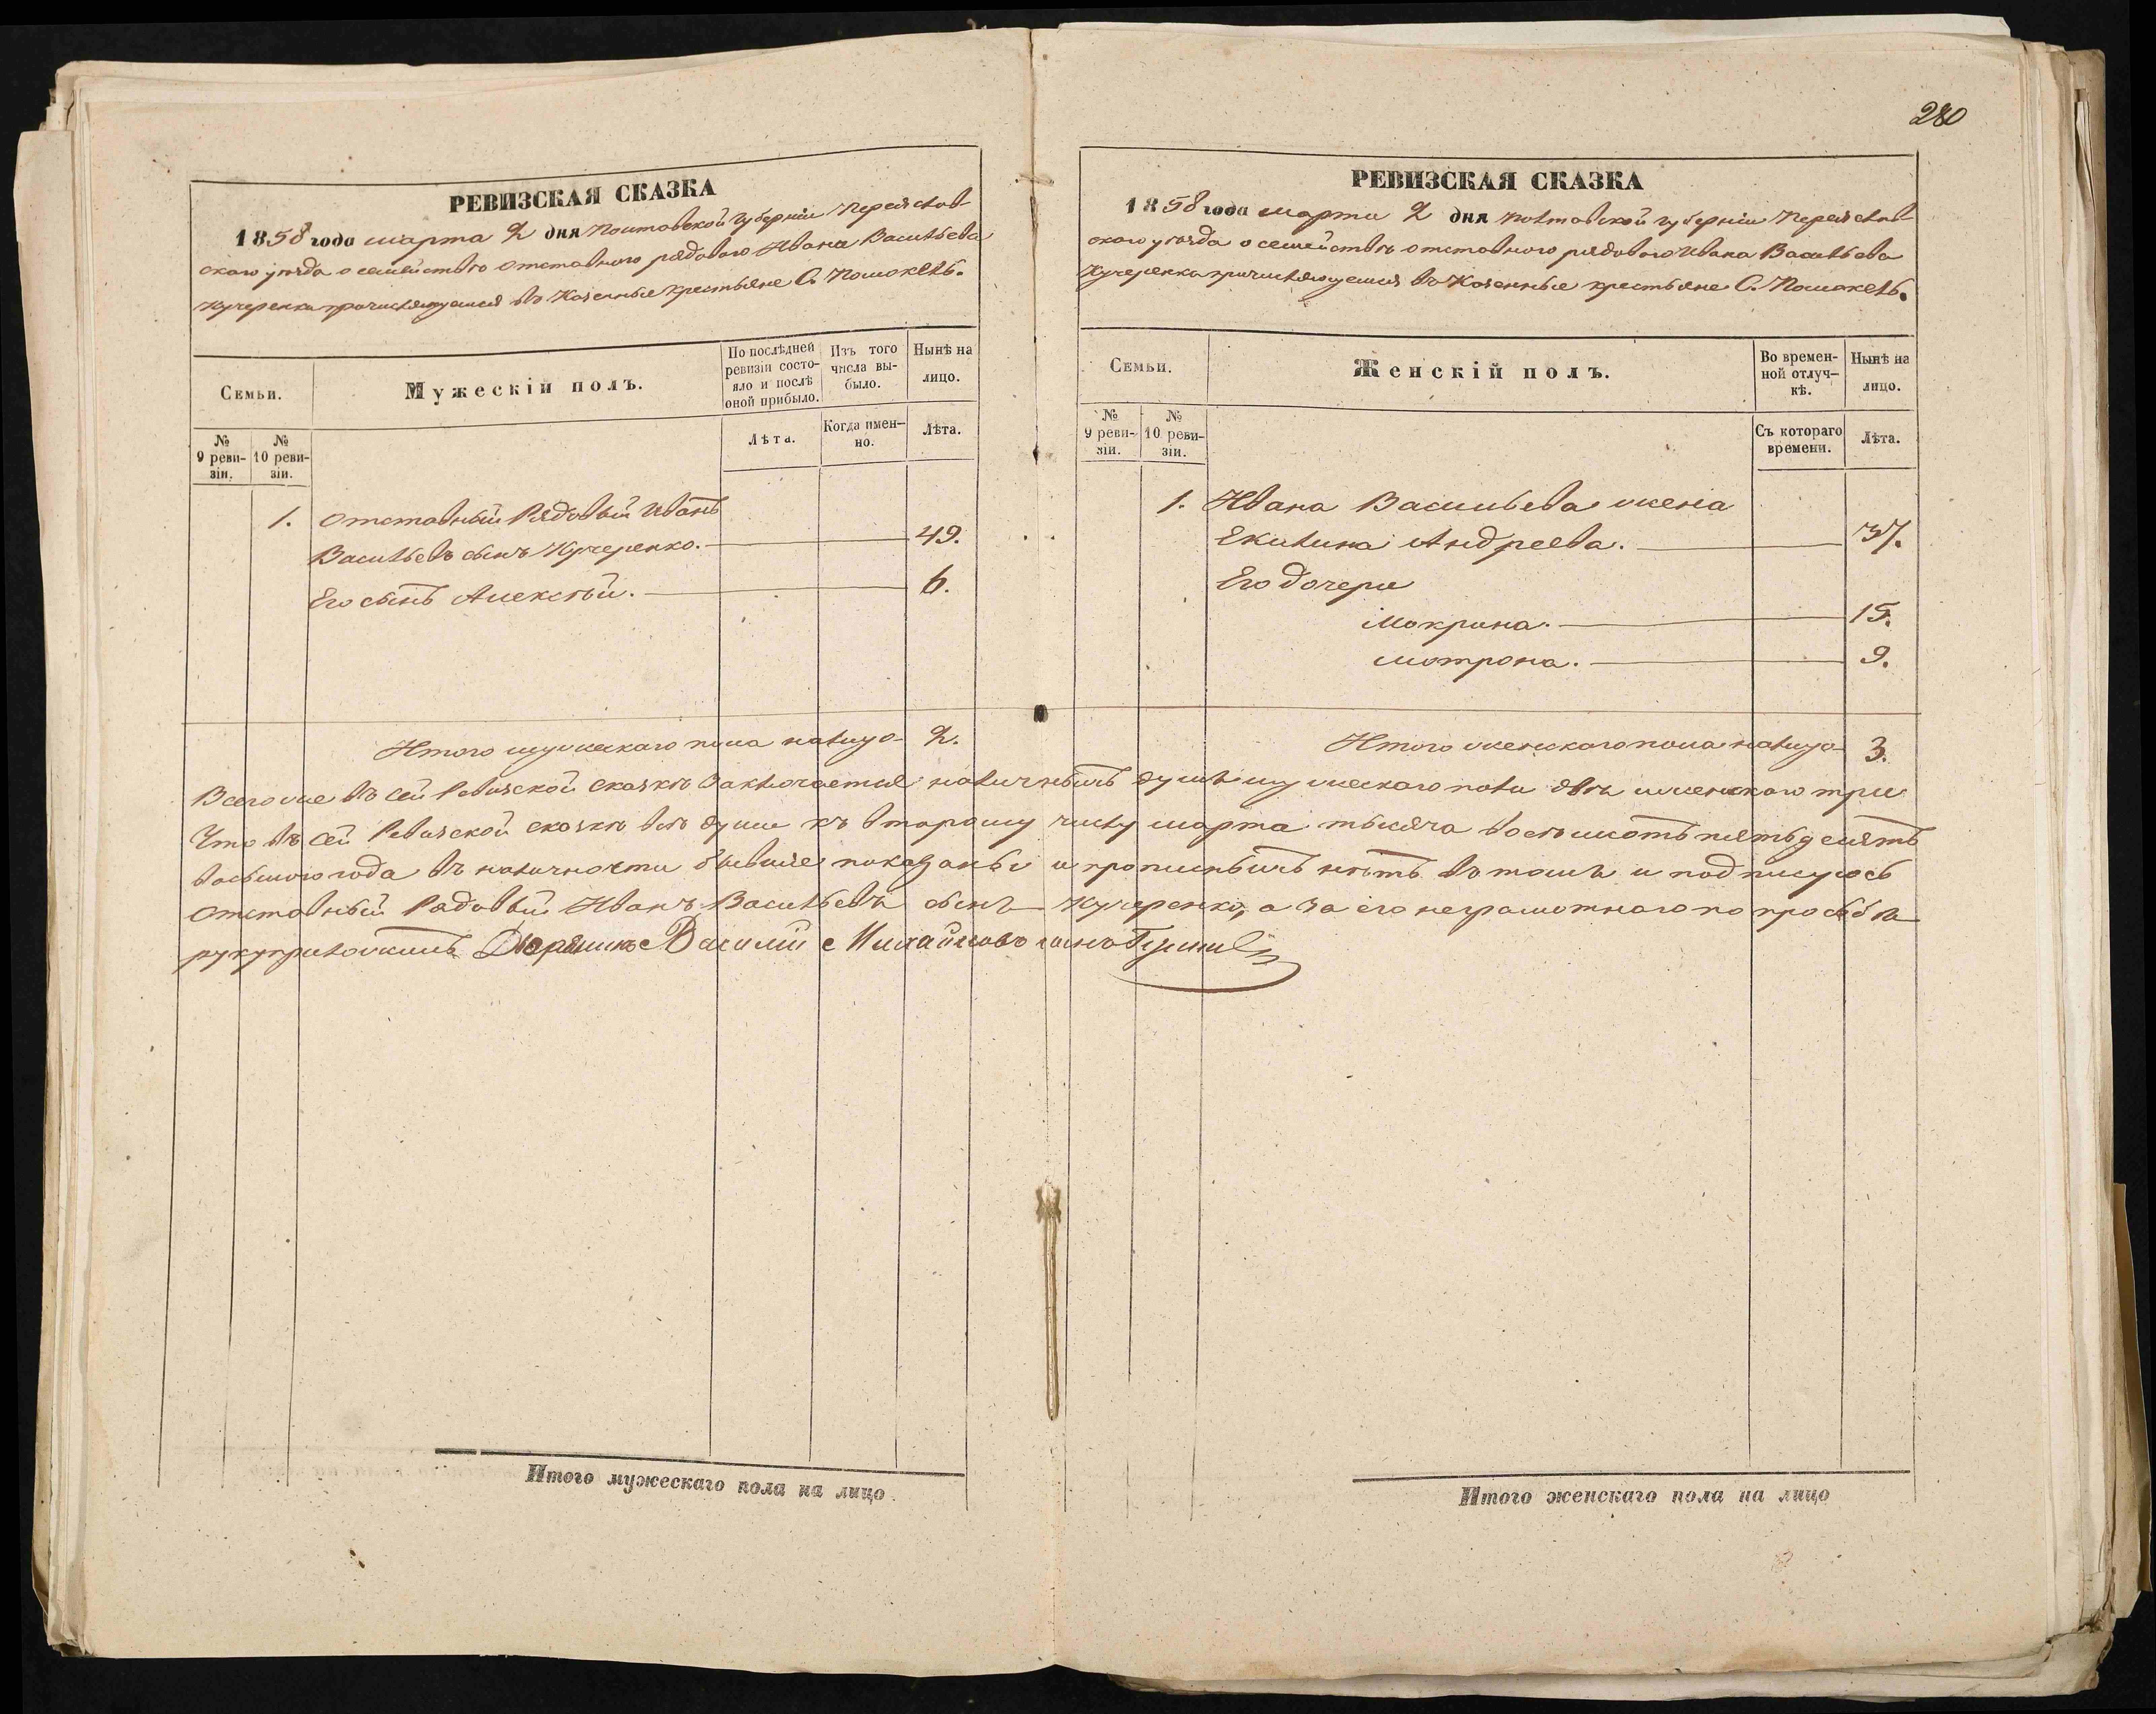 280
РЕВИЗСКАЯ СКАЗКА
1858 года марта 2 дня Полтавской Губерніи Переяслав-
скаго уѣзда о семействѣ отставного рядового Ивана Васильева
Кучеренка причисляющемся въ Казенные крестьяне С. Помоклѣ.
Семьи.
Мужескій полъ.
По послѣдней ревизіи состо-
яло и послѣ оной прибыло.
Изъ того числа вы-
было.
Нынѣ на лицо.
№ 9 реви-
зіи.
№ 10 реви-
зіи.
Лѣта.
Когда имен-
но.
Лѣта.
1. Отставный Рядовый Иванъ
Васильевъ сынъ Кучеренко. 49.
Его сынъ Алексѣй. 6.
Итого мужескаго пола налицо 2.
РЕВИЗСКАЯ СКАЗКА
1858 года марта 2 дня Полтавской губерніи Переяслав-
скаго уѣзда о семействѣ отставного рядового Ивана Васильева
Кучеренка причисляющемся въ Казенные крестьяне С. Помоклѣ.
Семьи.
Женскій полъ.
Во времен-
ной отлуч-
кѣ.
Нынѣ на лицо.
№ 9 реви-
зіи.
№ 10 реви-
зіи.
Съ котораго времени.
Лѣта.
1. Ивана Васильева жена
Екилина Андреева. 37.
Его дочери
Мокрина. 15.
Мотрона. 9.
Итого женскаго пола налицо 3.
Всего же въ сей Ревизской сказкѣ Заключается наличныхъ душъ мужескаго пола двѣ женскаго три
Что въ сей Ревизской сказкѣ всѣ души къ второму числу марта тысяча восьмсотъ пятьдесятъ
восьмого года въ наличности бывшіе показаны и прописныхъ нѣтъ въ томъ и подписуюсь
Отставный Рядовый Иванъ Васильевъ сынъ Кучеренко, а За его неграмотнаго по прозбѣ
руку приложилъ Дворянинъ Василій Михайловъ сынъ
Итого мужескаго пола на лицо
Итого женскаго пола на лицо